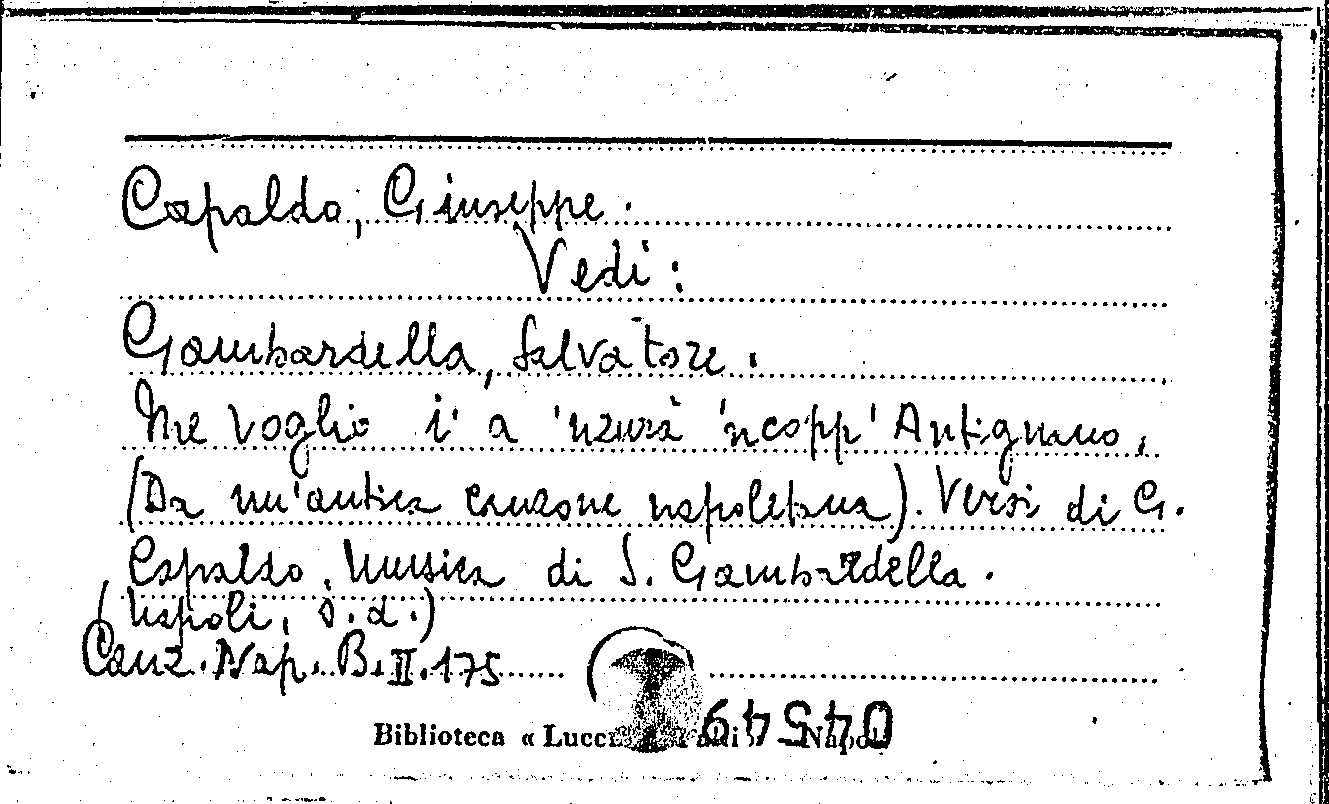 Capaldo, Giuseppe.
Vedi:
Gambardella, Salvatore.
Me voglio i' a 'nzurà 'ncopp' Antignano,
(Da nu'antica canzone napoletana). Versi di G.
Capaldo, Musica di S. Gambardella.
(Napoli, s.d.)
Canz. Nap. B.II.175
Biblioteca « Napoli